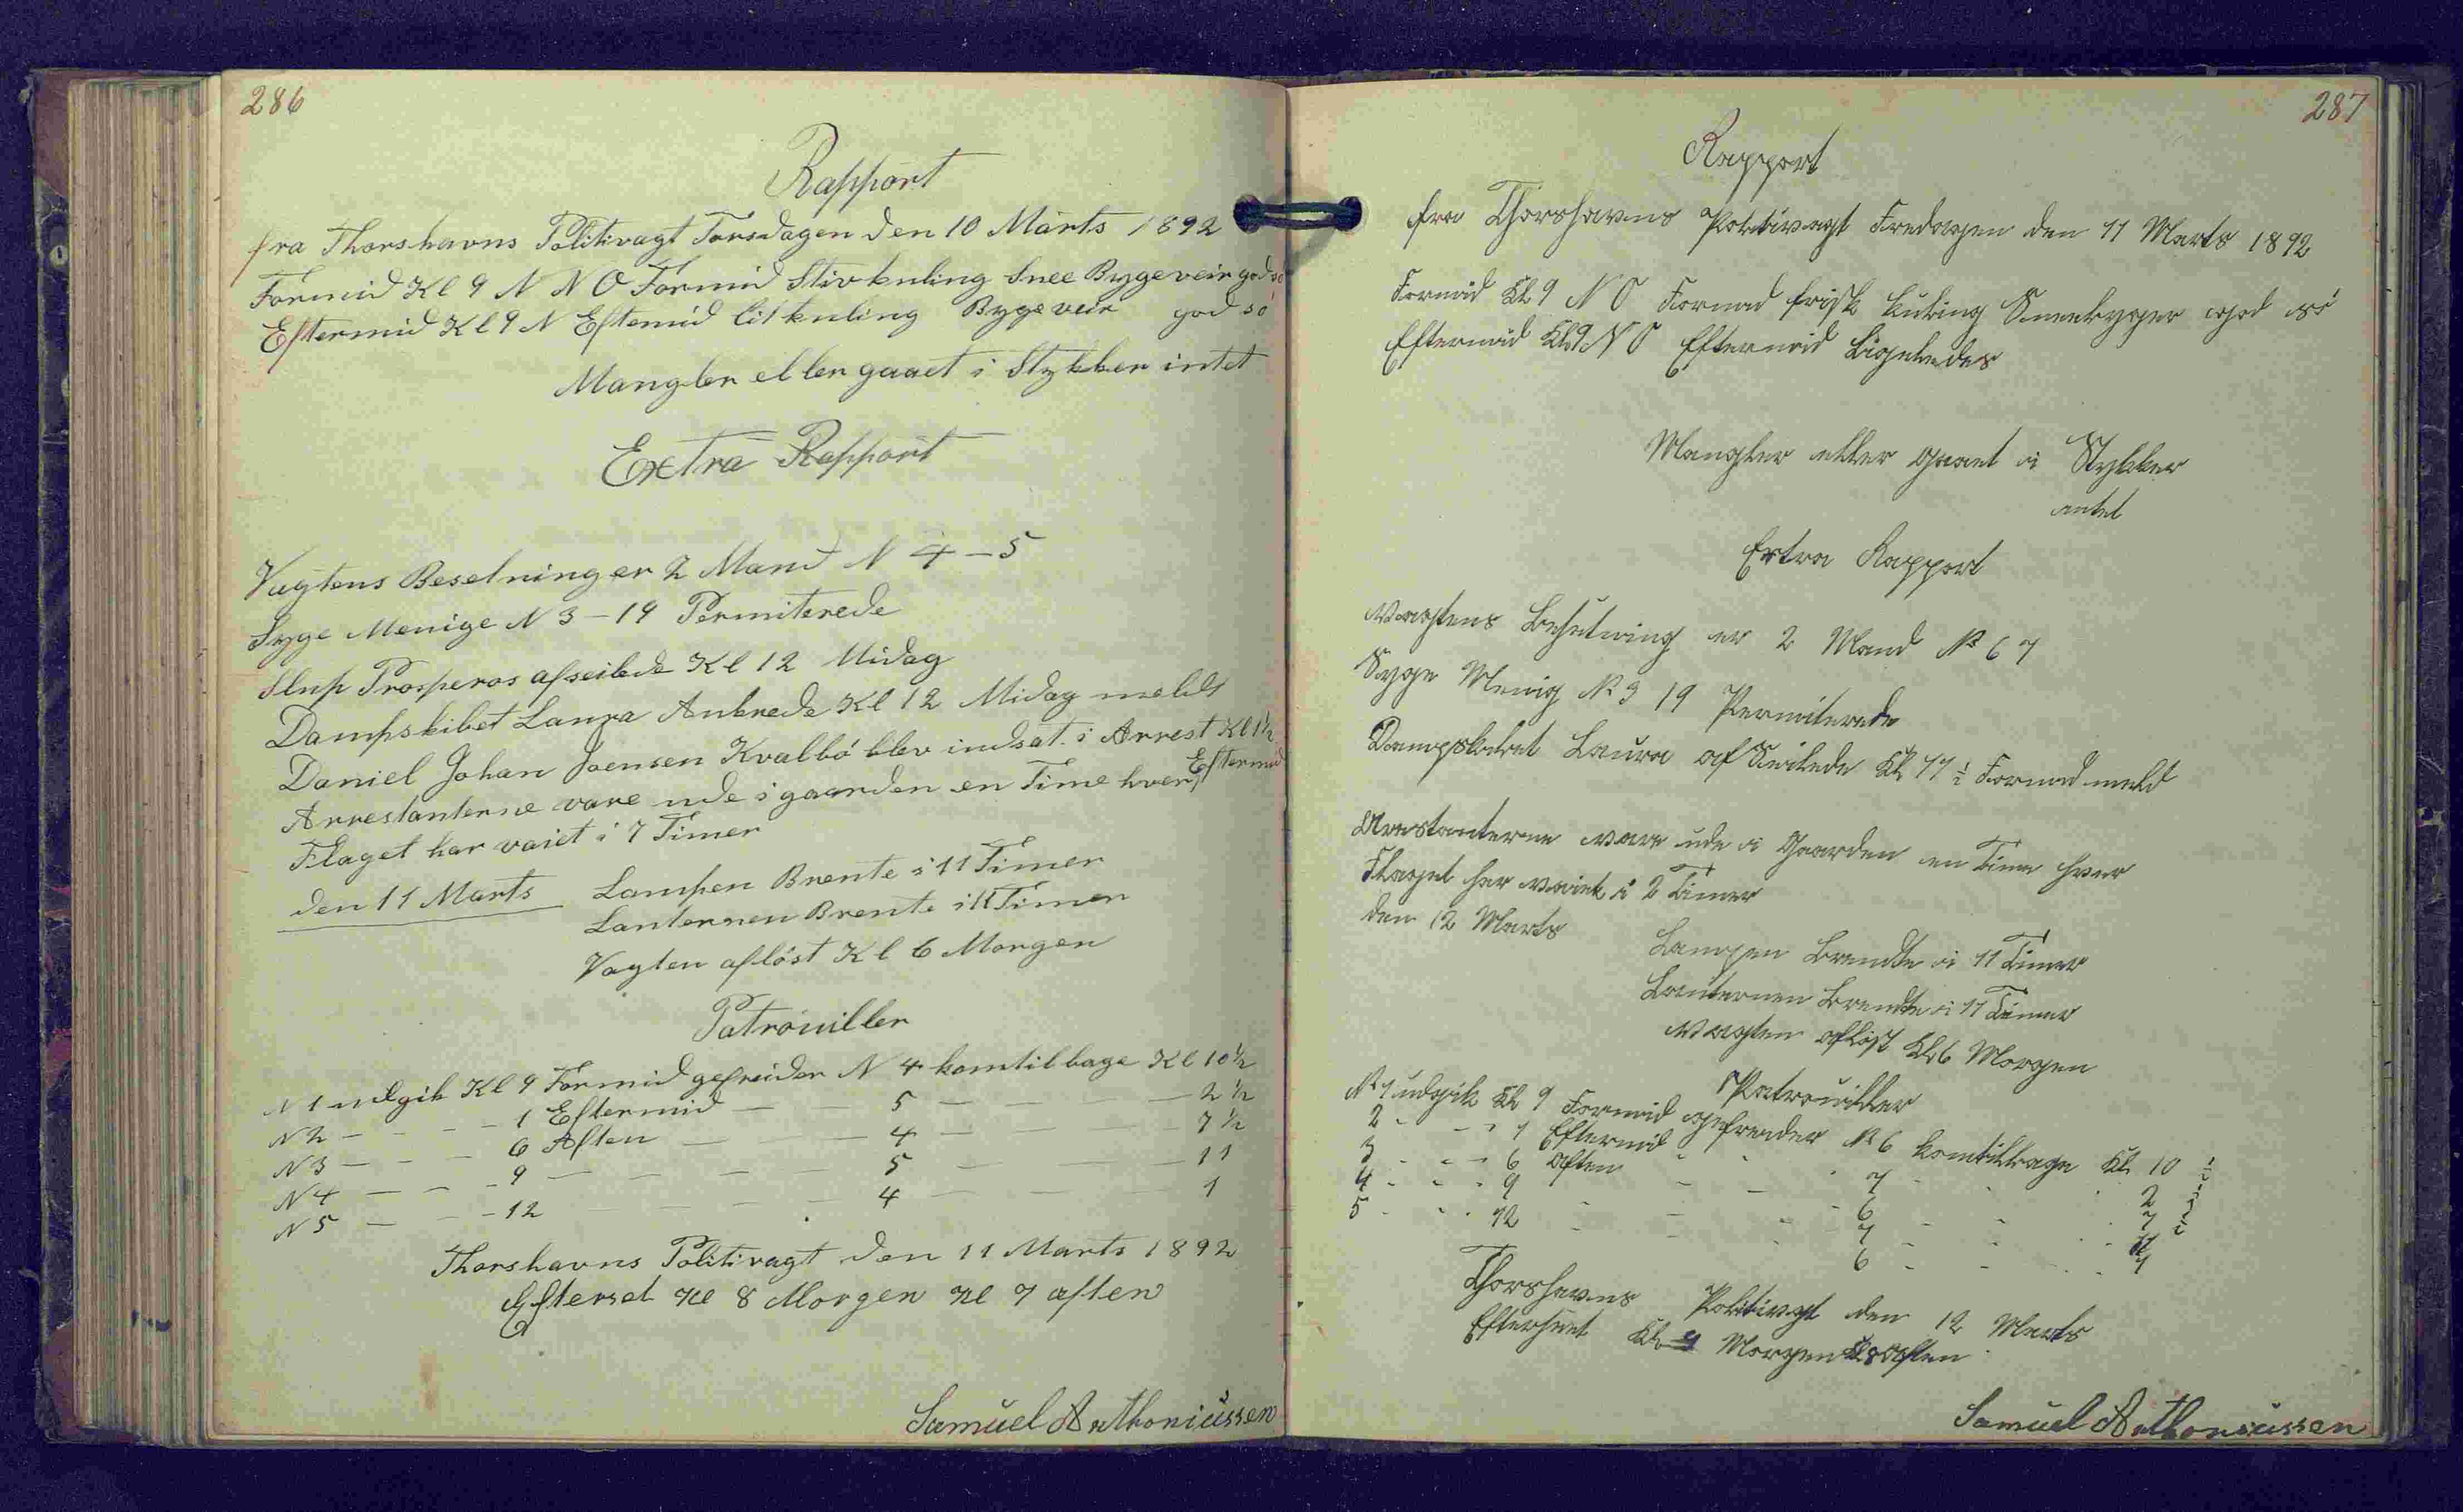 286
Rapport
fra Thorshavns Politivagt Torsdagen den 10 Marts 1892
Formid Kl 9 N N O Formid Stivkuling Snee Bygeveir god sö
Eftermid Kl 9 N Eftemid litkuling Bygeveir god sö
Mangler eller gaaet i Stykker intet
Extra Rapport
Vagtens Besetning er 2 Mand N 4 – 5
Syge Menige N 3 – 19 Permiterede
Slup Prosperos afseilede Kl 12 Midag
Dampskibet Laura Ankrede Kl 12 Midag meldt
Daniel Johan Joensen Kvalbö blev indsat i Arrest Kl 1½ Eftermid
Arrestanterne vare ude i gaarden en Time hver
Flaget har vaiet i 7 Timer
den 11 Marts Lampen Brente i 11 Timer
Lanternen Brente i 11 Timer
Vagten aflöst Kl 6 Morgen
Patrouiller
N 1 udgik Kl 9 Formid gefreider N 4 komtilbage Kl 10½
N 2 – – – – 1 Eftermid – – 5 – – – 2½
N 3 – – – 6 Aften – – – 4 – – – 7½
N 4 – – – 9 – – – – 5 – – – 11
N 5 – – – 12 – – – – 4 – – – 1
Thorshavns Politivagt den 11 Marts 1892
Efterset Kl 8 Morgen Kl 7 aften
Samuel Anthoniussen
287
Rapport
fra Thorshavns Politivagt Fredagen den 11 Marts 1892
Formid Kl 9 N O Formid frisk kuling Sneebyger god sö
Eftermid Kl 9 N O Eftermid Ligeledes
Mangler eller gaaet i Stykker
intet
Extra Rapport
Vagtens Besetning er 2 Mand N 6 7
Syge Menig N 3 19 Permiterede
Dampskibet Laura af Seilede Kl 11 ½ Formid meld
Arestanterne vare ude i Gaarden en Time hver
Flaget har vaiet i 2 Timer
den 12 Marts
Lampen Brendte i 11 Timer
Lanternen Brendte i 11 Timer
Vagten aflöst Kl 6 Morgen
Patrouiller
N 1 udgik Kl 9 Formid gefreider N 6 komtilbage Kl 10 ½
2 - - - 1 Eftermid - - 7 - - 2 ½
3 - - - 6 Aften - - 6 - - 7 ½
4 - - - 9 - - - 7 - - 11
5 - - - 12 - - - 6 - - 1
Thorshavns Politivagt den 12 Marts
Efterseet Kl 9 Morgen Kl 8 Aften
Samuel Anthoniussen